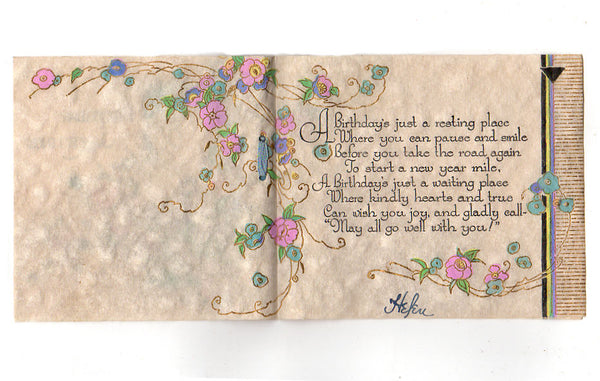 A Birthday's just a resting place
Where you can pause and smile
Before you take the road again
To start a new year mile.
A Birthday's just a waiting place
Where kindly hearts and true
Can wish you joy, and gladly call-
"May all go well with you!"
Helen